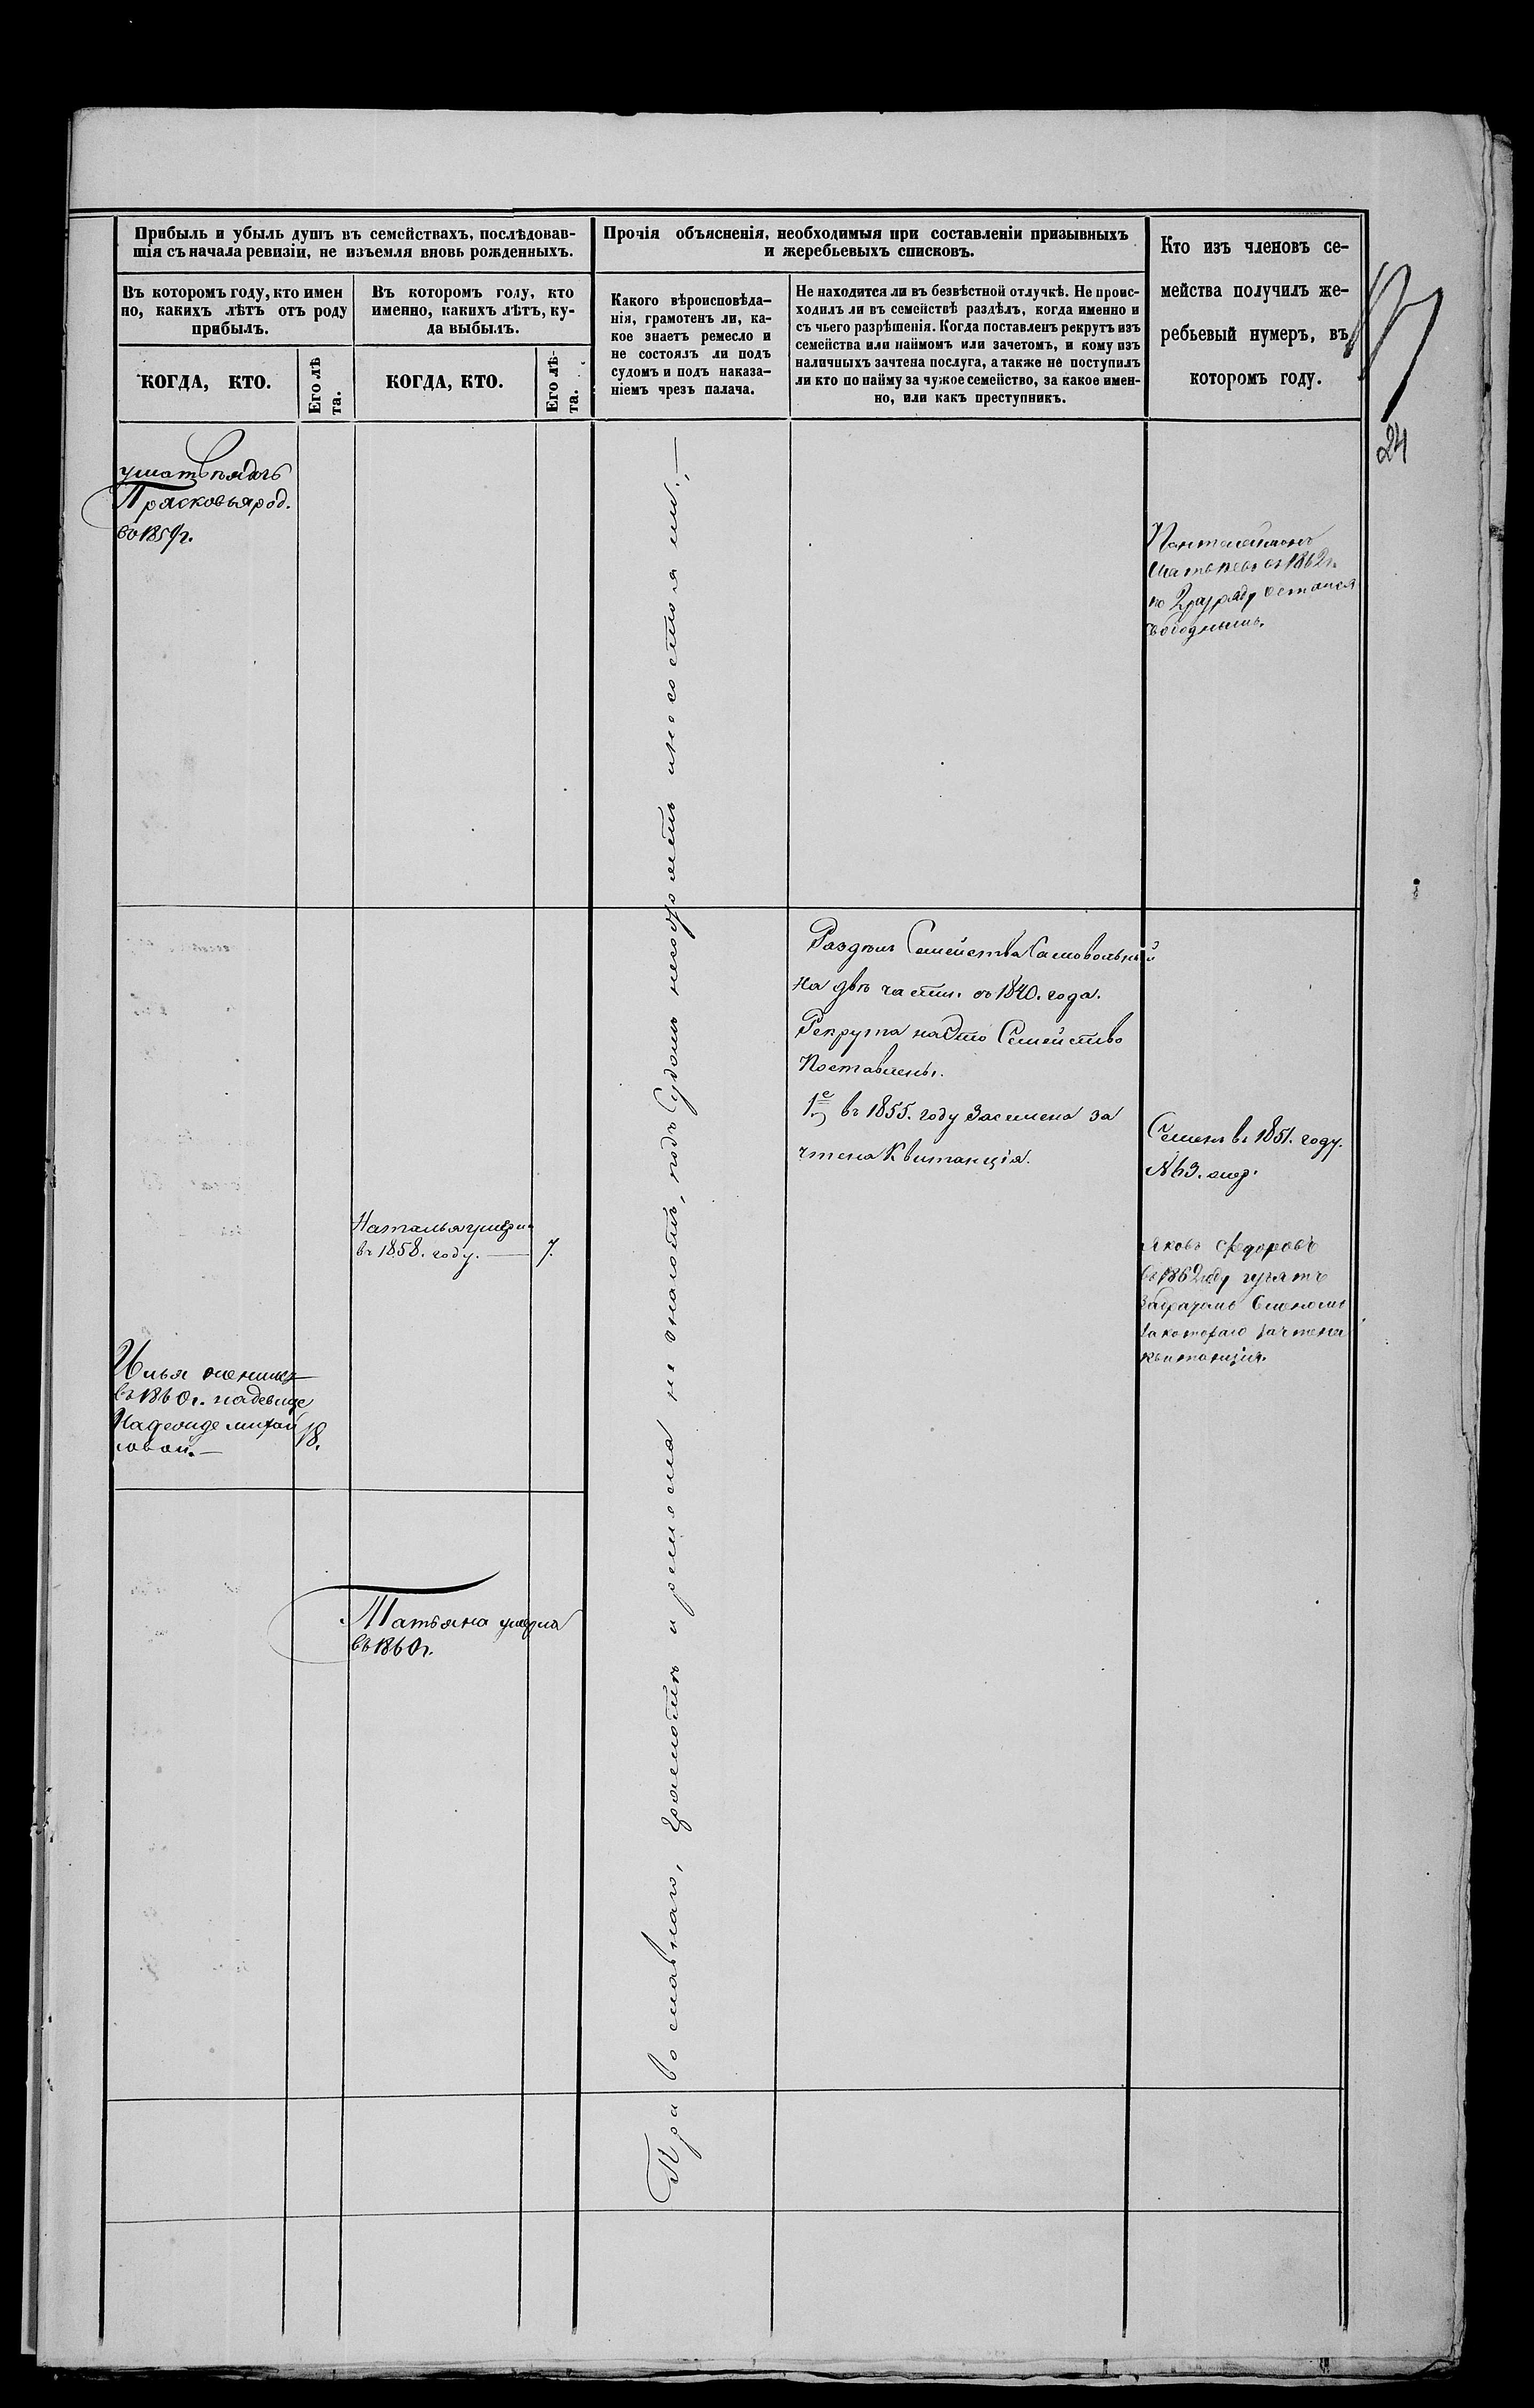 Прибыль и убыль душъ въ семействахъ, послѣдовав-
шія съ начала ревизіи, не изъемля вновь рожденныхъ.
Прочія объясненія, необходимыя при составленіи призывныхъ
и жеребьевыхъ списковъ.
Кто изъ членовъ се-
мейства получилъ же-
ребьевый нумеръ, въ
которомъ году.
Въ которомъ году, кто имен
но, какихъ лѣтъ отъ роду
прибылъ.
Въ которомъ году, кто
именно, какихъ лѣтъ, ку-
да выбылъ.
Какого вѣроисповѣда-
нія, грамотенъ ли, ка-
кое знаетъ ремесло и
не состоялъ ли подъ
судомъ и подъ наказа-
ніемъ чрезъ палача.
Не находится ли въ безвѣстной отлучкѣ. Не проис-
ходилъ ли въ семействѣ раздѣлъ, когда именно и
съ чьего разрѣшенія. Когда поставленъ рекрутъ изъ
семейства или наймомъ или зачетомъ, и кому изъ
наличныхъ зачтена послуга, а также не поступилъ
ли кто по найму за чужое семейство, за какое имен-
но, или какъ преступникъ.
КОГДА, КТО.
Его лѣ
та.
КОГДА, КТО.
Его лѣ-
та.
24
Прасковья род.
во 1859г.
Пантелеймонъ
Матвѣевъ въ 1862г.
по 2 разряду остался
свободнымъ.
Православнаго, грамотѣ и ремесла не знаютъ, подъ Судомъ
Раздѣлъ Семейства Самовольный
на двѣ части. въ 1840. года.
Рекрута на это Семейство
Поставлены.
1е въ 1855. году За семена за
чтена Квитанція.
Семенъ въ 1851. году.
№ 63.
Наталья умерла
въ 1858. году. — 7.
Яковъ Федоровъ
въ 1862 году изъятъ
за братомъ Семеномъ
за котораго зачтена
квитанція.
Илья женился
въ 1860г. на девице
Надежде Михай
ловой. — 18.
Татьяна умерла
въ 1860г.